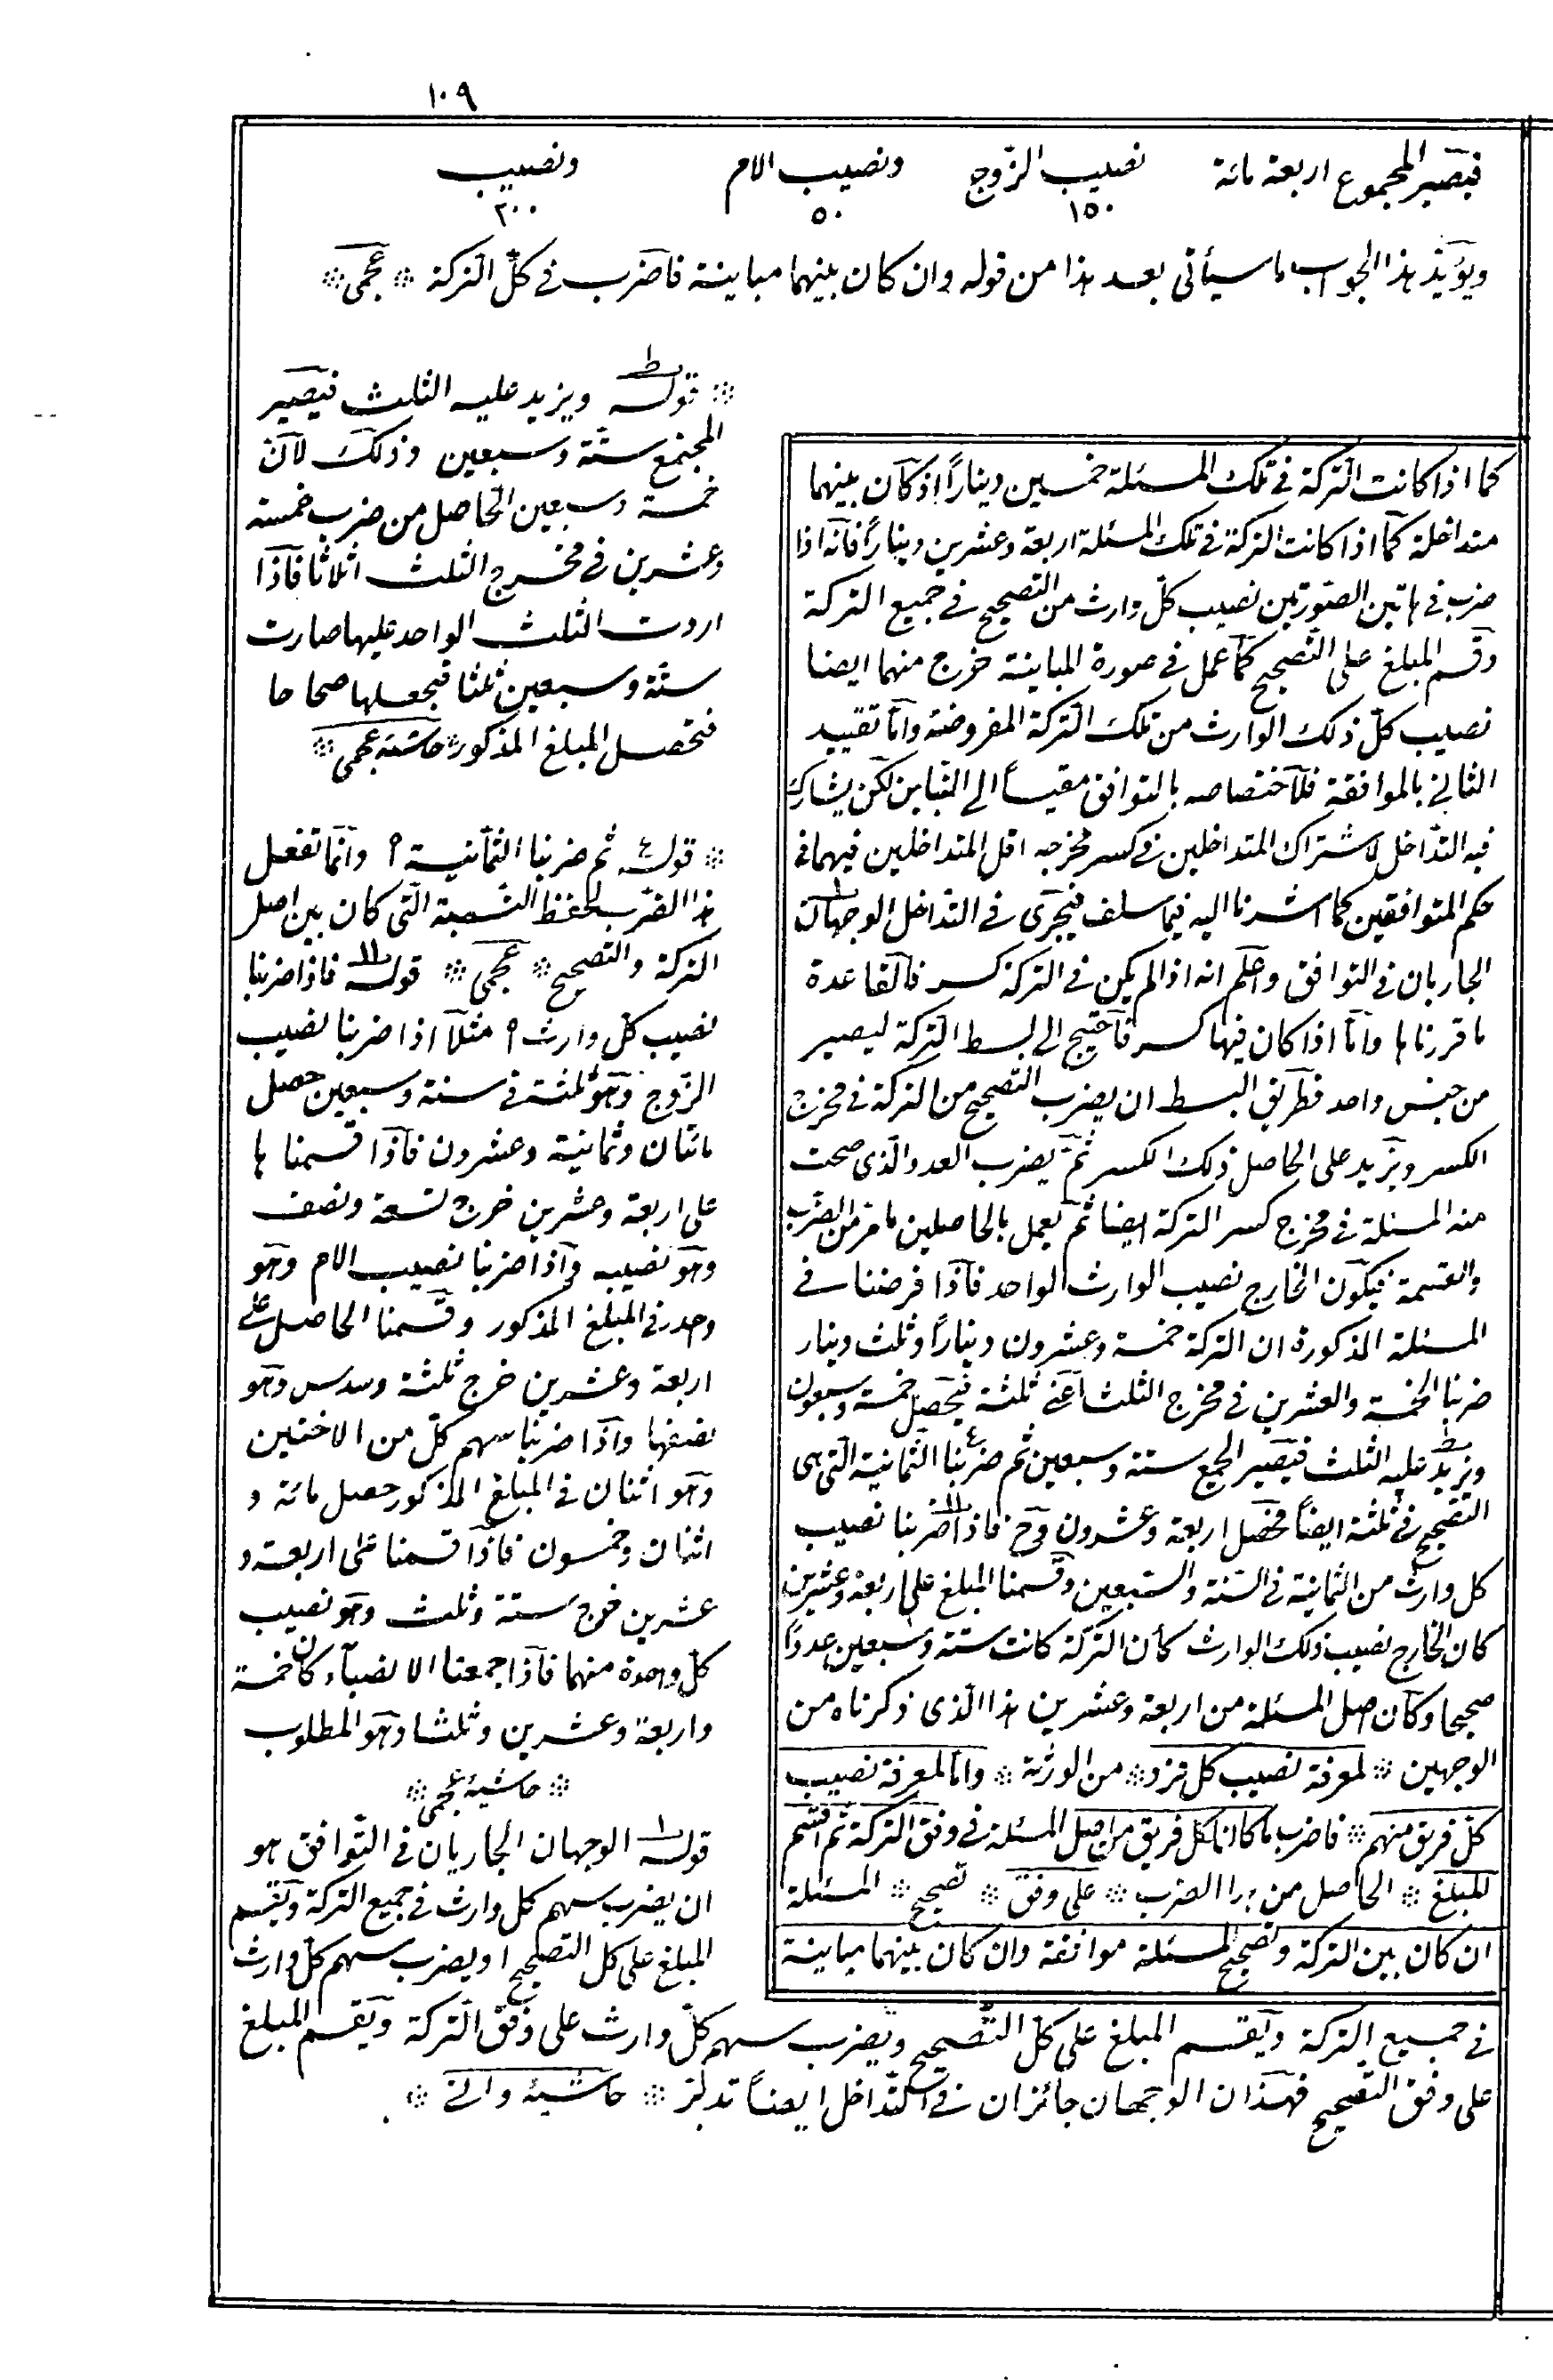 ١٠٩
فيصير المجموع اربعة مائة نصيب الزوج ونصيب الام ونصيب
١٥٠ ٥٠ ٢٠٠
ويؤيد هذا الجواب ما سيأتى بعد هذا من قوله وان كان بينهما مباينة فاضرب فى كل التركة ❊ عجمى ❊
كما اذا كانت التركة فى تلك المسئلة خمسين ديناراً اذ كان بينهما
متداخلة كما اذا كانت التركة فى تلك المسئلة اربعة وعشرين ديناراً فانه اذا
ضرب فى هاتين الصورتين نصيب كل وارث من التصحيح فى جميع التركة
وقسم المبلغ على التصحيح كما عمل فى صورة المباينة خرج منهما ايضا
نصيب كل ذلك الوارث من تلك التركة المفروضة واما تقييد
الثانى بالموافقة فلاختصاصه بالتوافق مقيساً الى التباين لكن يشارك
فيه التداخل لاشتراك المتداخلين فى كسر مخرجه اقل المتداخلين فهما فى
حكم المتوافقين كما اشرنا اليه فيما سلف فيجرى فى التداخل الوجهان
الجاريان فى التوافق واعلم انه اذا لم يكن فى التركة كسر فالقاعدة
ما قررناها واما اذا كان فيها كسر فاحتيج الى بسط التركة ليصير
من جنس واحد فطريق البسط ان يضرب التصحيح من التركة فى مخرج
الكسر ويزيد على الحاصل ذلك الكسر ثم يضرب العدد الذى صحت
منه المسئلة فى مخرج كسر التركة ايضا ثم يعمل بالحاصلين ما مر من الضرب
والقسمة فيكون الخارج نصيب الوارث الواحد فاذا فرضنا فى
المسئلة المذكورة ان التركة خمسة وعشرون ديناراً وثلث دينار
ضربنا الخمسة والعشرين فى مخرج الثلث اعنى ثلثة فيحصل خمسة وسبعون
ويزيد عليه الثلث فيصير الجمع ستة وسبعين ثم ضربنا الثمانية التى هى
التصحيح فى ثلثة ايضاً فحصل اربعة وعشرون وح فاذا ضربنا نصيب
كل وارث من الثمانية فى الستة والسبعين وقسمنا المبلغ على اربعة وعشرين
كان الخارج نصيب ذلك الوارث كأن التركة كانت ستة وسبعين عدداً
صحيحا وكأن اصل المسئلة من اربعة وعشرين هذا الذى ذكرناه من
الوجهين ❊ لمعرفة نصيب كل فرد ❊ من الورثة ❊ واما لمعرفة نصيب
كل فريق منهم ❊ فاضرب ما كان لكل فريق من اصل المسئلة فى وفق التركة ثم اقسم
المبلغ ❊ الحاصل من هذا الضرب ❊ على وفق ❊ تصحيح ❊ المسئلة
ان كان بين التركة وتصحيح المسئلة موافقة وان كان بينهما مباينة
❊ قوله ويزيد عليه الثلث فيصير
المجتمع ستة وسبعين وذلك لان
خمسة وسبعين الحاصل من ضرب خمسة
وعشرين فى مخرج الثلث اثلاثا فاذا
اردت الثلث الواحد عليها صارت
ستة وسبعين ثلثا فيجعلها صحاحا
فتحصل المبلغ المذكور ❊ حاشية عجمى ❊
❊ قوله ثم ضربنا الثمانية ٩ وانما تفعل
هذا الضرب لحفظ النسبة التى كان بين اصل
التركة والتصحيح ❊ عجمى ❊ قوله فاذا ضربنا
نصيب كل وارث ٩ مثلا اذا ضربنا نصيب
الزوج وهو ثلثة فى ستة وسبعين حصل
مائتان وثمانية وعشرون فاذا قسمناها
على اربعة وعشرين خرج تسعة ونصف
وهو نصيبه واذا ضربنا نصيب الام وهو
واحد فى المبلغ المذكور وقسمنا الحاصل على
اربعة وعشرين خرج ثلثة وسدس وهو
نصيبها واذا ضربنا سهم كل من الاختين
وهو اثنان فى المبلغ المذكور حصل مائة و
اثنان وخمسون فاذا قسمنا على اربعة و
عشرين خرج ستة وثلث وهو نصيب
كل واحدة منهما فاذا جمعنا الانصباء كان خمسة
واربعة وعشرين وثلثا وهو المطلوب
❊ حاشية عجمى ❊
قوله الوجهان الجاريان فى التوافق هو
ان يضرب سهم كل وارث فى جميع التركة ويقسم
المبلغ على كل التصحيح او يضرب سهم كل وارث
فى جميع التركة ويقسم المبلغ على كل التصحيح ويضرب سهم كل وارث على وفق التركة ويقسم المبلغ
على وفق التصحيح فهذان الوجهان جائزان فى التداخل ايضاً تدبر ❊ حاشية وانى ❊